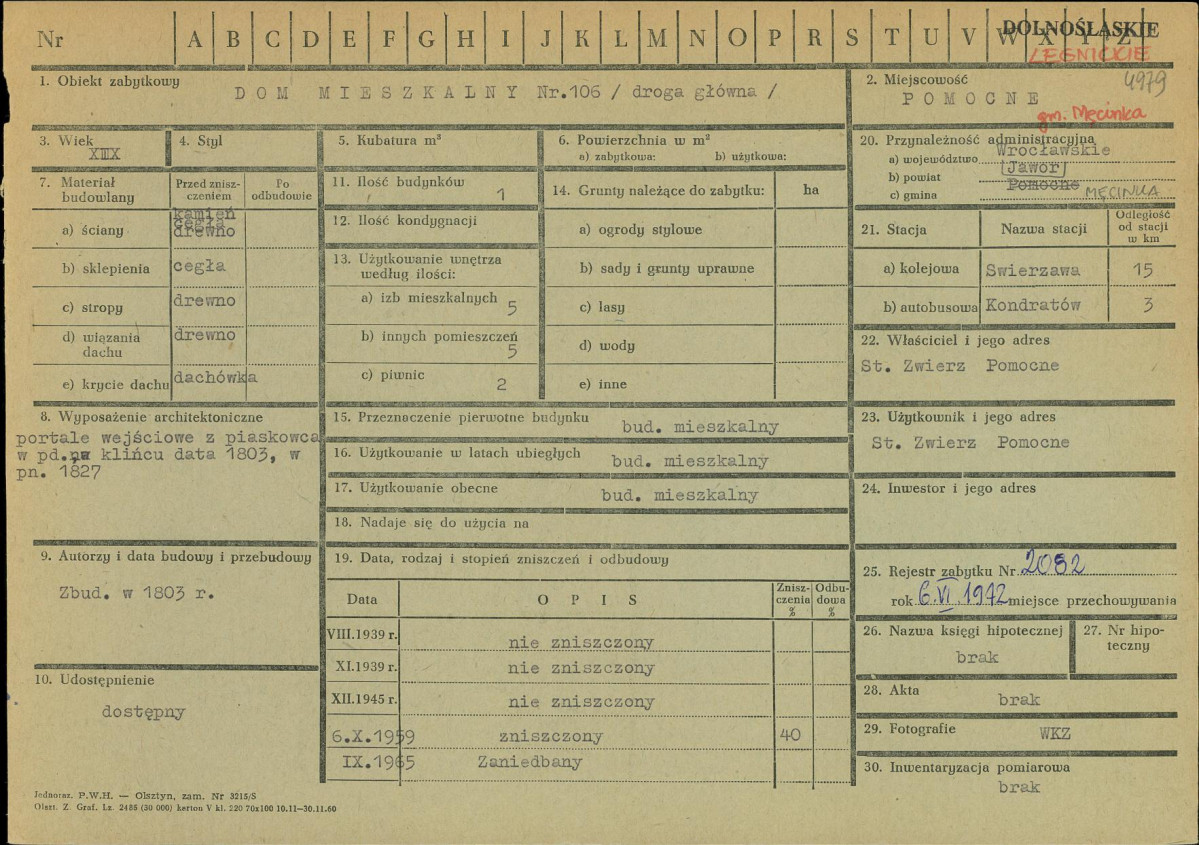 Nr A B C D E F G H I J K L M N O P R S T U V W X Y Z
DOLNOŚLĄSKIE
LEGNICKIE
4979
1. Obiekt zabytkowy
DOM MIESZKALNY Nr.106 / droga główna /
2. Miejscowość
POMOCNE
gm. Męcinka
3. Wiek
4. Styl
5. Kubatura m³
6. Powierzchnia w m²
a) zabytkowa: b) użytkowa:
7. Materiał budowlany
Przed zniszczeniem
Po odbudowie
a) ściany kamień cegła drewno
b) sklepienia cegła
c) stropy drewno
d) wiązania dachu drewno
e) krycie dachu dachówka
8. Wyposażenie architektoniczne
portale wejściowe z piaskowca
w pd. na klińcu data 1803, w
pn. 1827
9. Autorzy i data budowy i przebudowy
Zbud. w 1803 r.
10. Udostępnienie
dostępny
11. Ilość budynków 1
12. Ilość kondygnacji
13. Użytkowanie wnętrza
według ilości:
a) izb mieszkalnych 5
b) innych pomieszczeń 5
c) piwnic 2
14. Grunty należące do zabytku: ha
a) ogrody stylowe
b) sady i grunty uprawne
c) lasy
d) wody
e) inne
15. Przeznaczenie pierwotne budynku bud. mieszkalny
16. Użytkowanie w latach ubiegłych bud. mieszkalny
17. Użytkowanie obecne bud. mieszkalny
18. Nadaje się do użycia na
19. Data, rodzaj i stopień zniszczeń i odbudowy
Data OPIS Zniszczenia % Odbudowa %
VIII.1939 r. nie zniszczony
XI.1939 r. nie zniszczony
XII.1945 r. nie zniszczony
6.X.1959 zniszczony 40
IX.1965 Zaniedbany
20. Przynależność administracyjna
a) województwo Wrocławskie
b) powiat Jawor
c) gmina Pomocne MĘCINKA
21. Stacja Nazwa stacji Odległość od stacji w km
a) kolejowa Swierzawa 15
b) autobusowa Kondratów 3
22. Właściciel i jego adres
St. Zwierz Pomocne
23. Użytkownik i jego adres
St. Zwierz Pomocne
24. Inwestor i jego adres
25. Rejestr zabytku Nr 2082
rok 6.VI.1972 miejsce przechowywania
26. Nazwa księgi hipotecznej
brak
27. Nr hipoteczny
28. Akta
brak
29. Fotografie
WKZ
30. Inwentaryzacja pomiarowa
brak
Jednoraz. P.W.H. — Olsztyn, zam. Nr 3215/S
Olszt. Z. Graf. Lz. 2486 (30 000) karton V kl. 220 70x100 10.11—30.11.60